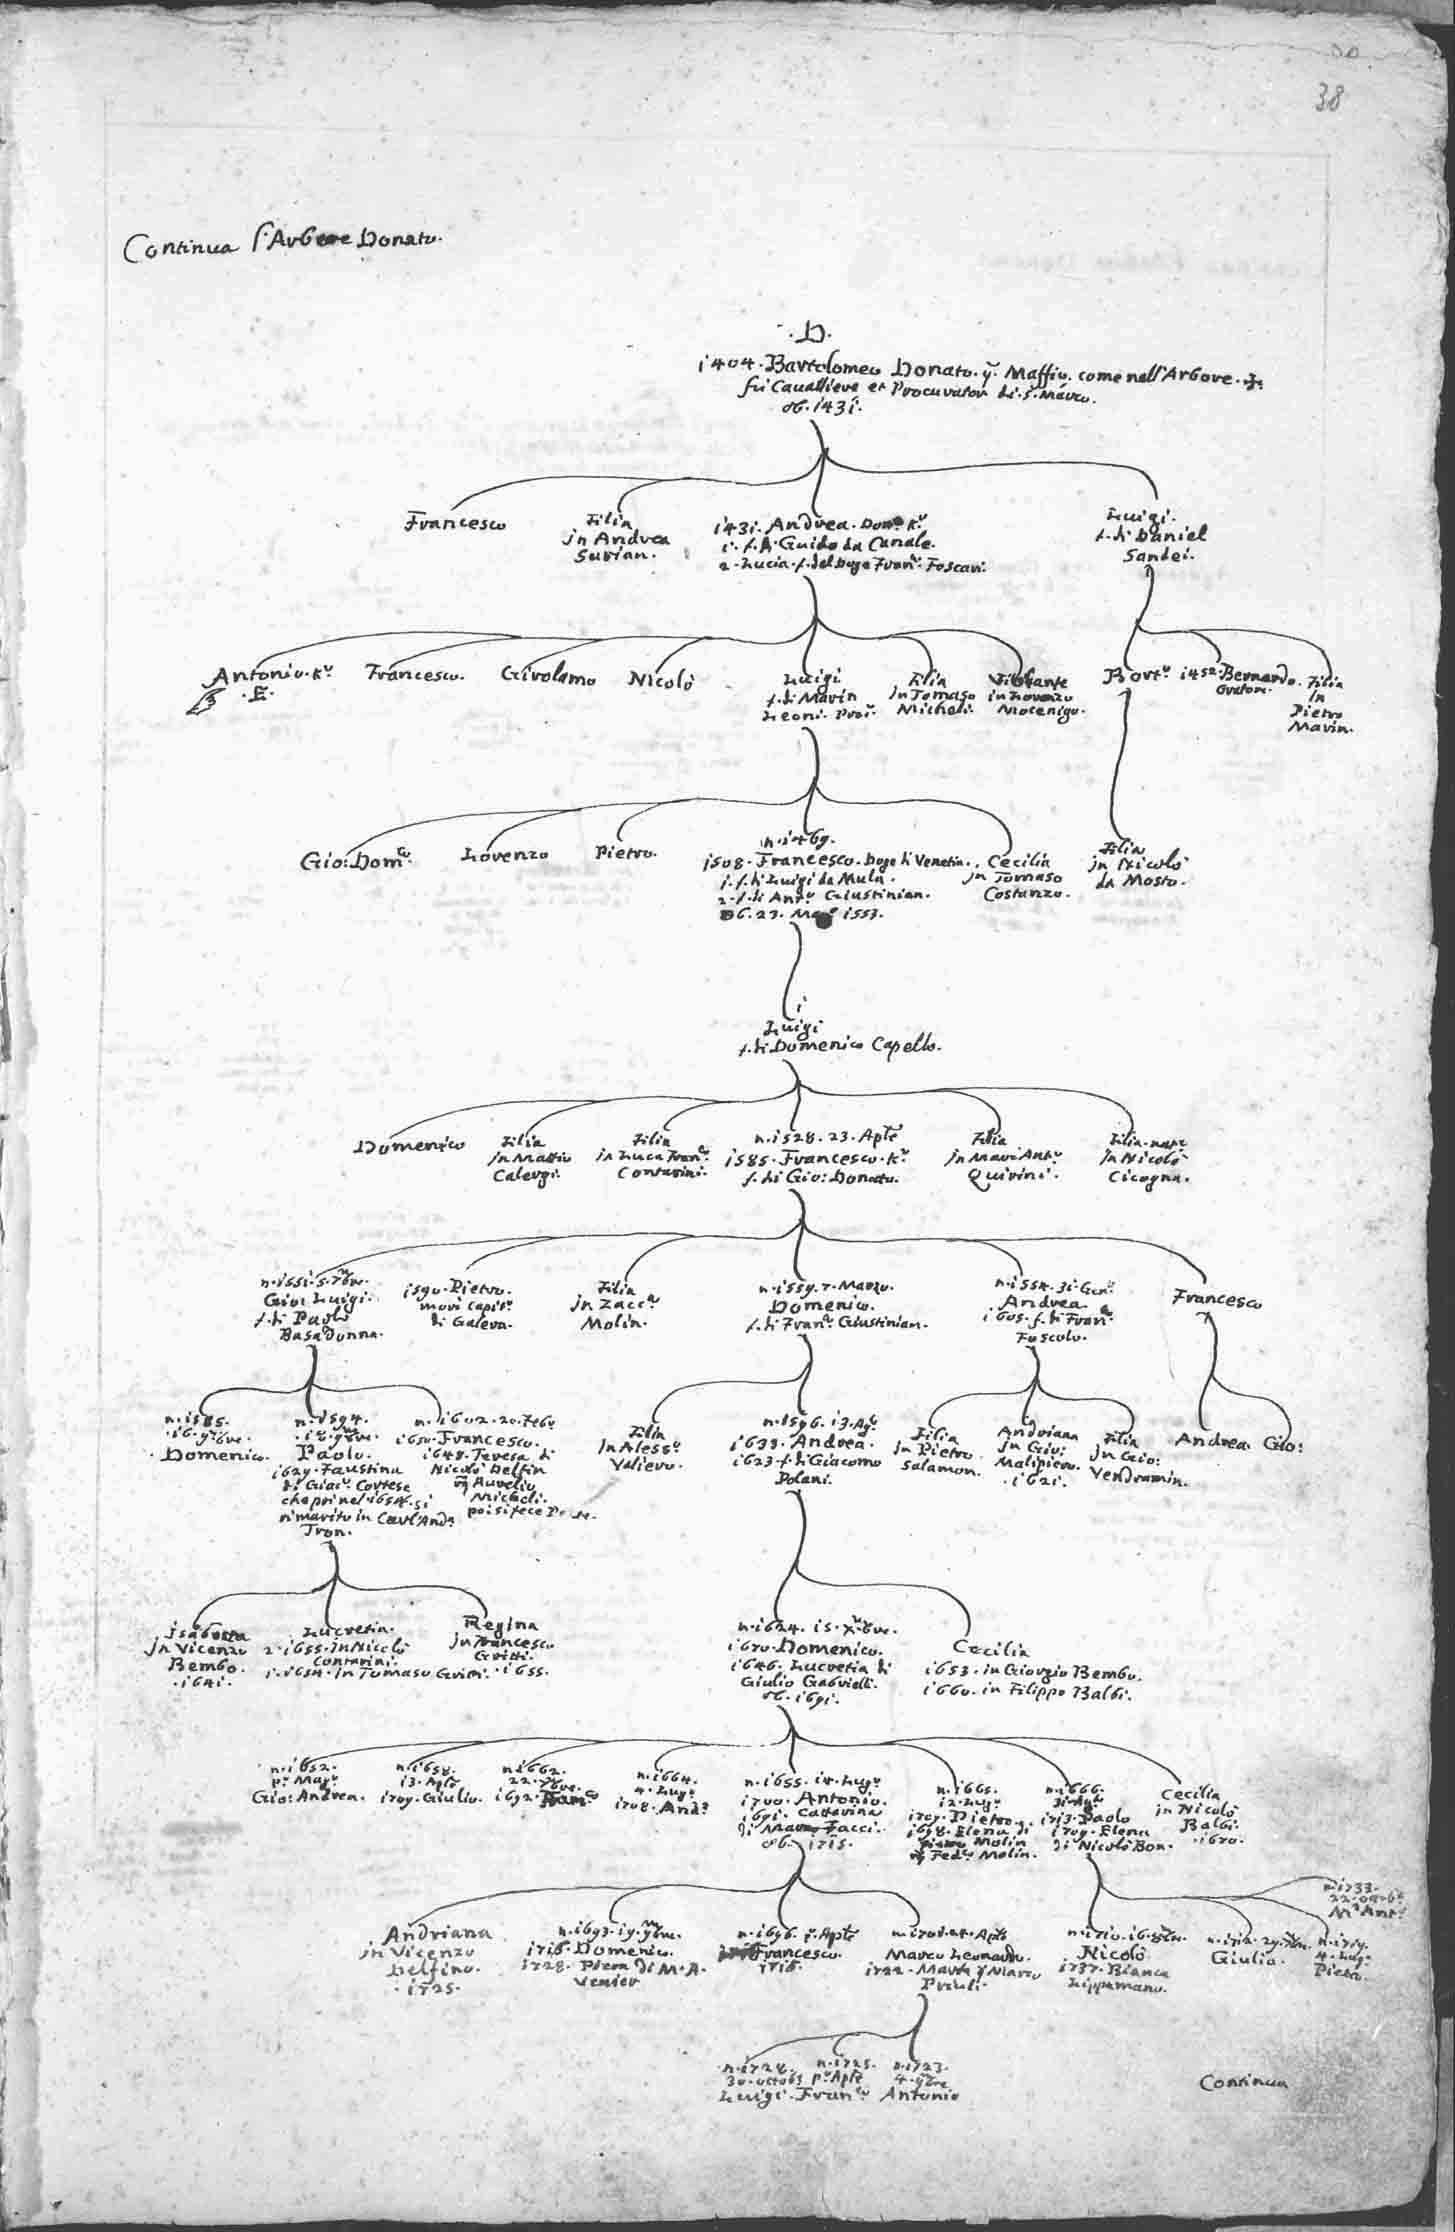 38
Continua l'Arbore Donato.
.D.
1404. Bartolomeo Donato. q. Maffio. come nell'Arbore.
fù Cavalliere et Procurator di S. Marco.
ob. 1431.
Francesco
Filia
in Andrea
Surian.
1431. Andrea. Dona Kr
1. f. di Guido da Canale.
2. Lucia. f. del Doge Franc. Foscari.
Luigi.
f. di Daniel
Sandei.
Antonio. Kr
.E.
Francesco.
Girolamo
Nicolò
Luigi
f. di Marin
Leoni. Proc.
Filia
in Tomaso
Michiel.
Violante
in Lorenzo
Mocenigo.
Bort.o
1452. Bernardo.
Filia
in
Pietro
Marin.
Gio: Dom.co
Lorenzo
Pietro.
n. 1469.
1508. Francesco. Doge di Venetia.
1. f. di Luigi da Mula.
2. f. di Ant.o Giustinian.
ob. 23. 1553.
Cecilia
in Tomaso
Costanzo.
Filia
in Nicolò
da Mosto.
1
Luigi
f. di Domenico Capello.
Domenico
Filia
in Maffio
Calergi.
Filia
in Luca Franc.
Contarini.
n. 1528. 23. Aple
1585. Francesco. Kr
f. di Gio: Donato.
Filia
in Marc'Ant.o
Quirini.
Filia nat.
in Nicolò
Cicogna.
n. 1551. 5. 7bre.
Gio: Luigi.
f. di Paolo
Basadonna.
1590. Pietro.
morì Capit.o
di Galera.
Filia
in Zacc.a
Molin.
n. 1559. 7. Marzo.
Domenico.
f. di Franc. Giustinian.
n. 1554. 31. Gen.
Andrea
1605. f. di Franc.
Foscolo.
Francesco
n. 1585.
Domenico.
n. 1594.
Paolo.
1629. Faustina
di Giac. Cortese
che poi nel 1654. si
rimaritò in Cavl. And.a
Tron.
n. 1602. 20. Febo
1630. Francesco.
1648. Teresa di
Nicolò Delfin
q. Aurelio
Micheli.
poi si fece
Filia
in Aless.o
Valiero.
n. 1596. 13. Ag.o
1633. Andrea.
1623. f. di Giacomo
Polani.
Filia
in Pietro
Salamon.
Andriana
in Gio:
Malipiero.
.1621.
Filia
in Gio:
Vendramin.
Andrea
Gio:
Isabetta
in Vicenzo
Bembo.
.1641.
Lucretia.
2. 1655. in Nicolò
Contarini.
1. 1654. in Tomaso Gritti.
Regina
in Francesco
Gritti.
.1655.
n. 1624. 15. Xbre.
1670. Domenico.
1646. Lucretia di
Giulio Gabrielli.
ob. 1691.
Cecilia
1653. in Giorgio Bembo.
1660. in Filippo Balbi.
n. 1652.
p.o Mag.o
Gio: Andrea.
n. 1658.
13. Aple
1709. Giulio.
n. 1662.
1692. Franc.o
n. 1664.
4. Lug.o
1708. And.a
n. 1655. 14. Lug.o
1700. Antonio.
1691. Cattarina
di Marco Zacci.
ob. 1715.
n. 1665.
12. Lug.o
1707. Pietro.
1698. Elena di
Molin
q. Fed.o Molin.
n. 1666.
1713. Paolo
1709. Elena
di Nicolò Bon.
Cecilia
in Nicolò
Balbi.
.1670.
n. 1733.
M. Ant.o
Andriana
in Vicenzo
Delfino.
.1725.
n. 1693. 19. 9bre.
1718. Domenico.
1728. Piera di M. A.
Venier
n. 1696. p. Aple
Francesco.
1718.
Marco Leonardo.
1722. Maria q. Marco
Priuli.
n. 1710. 16.
Nicolò
1737. Bianca
Lippomano.
Giulio.
n. 1719.
4. Lug.o
Piero.
n. 1728.
30. ottob.
Luigi.
n. 1725.
p.o Aple
Fran.co
n. 1723.
Antonio
Continua